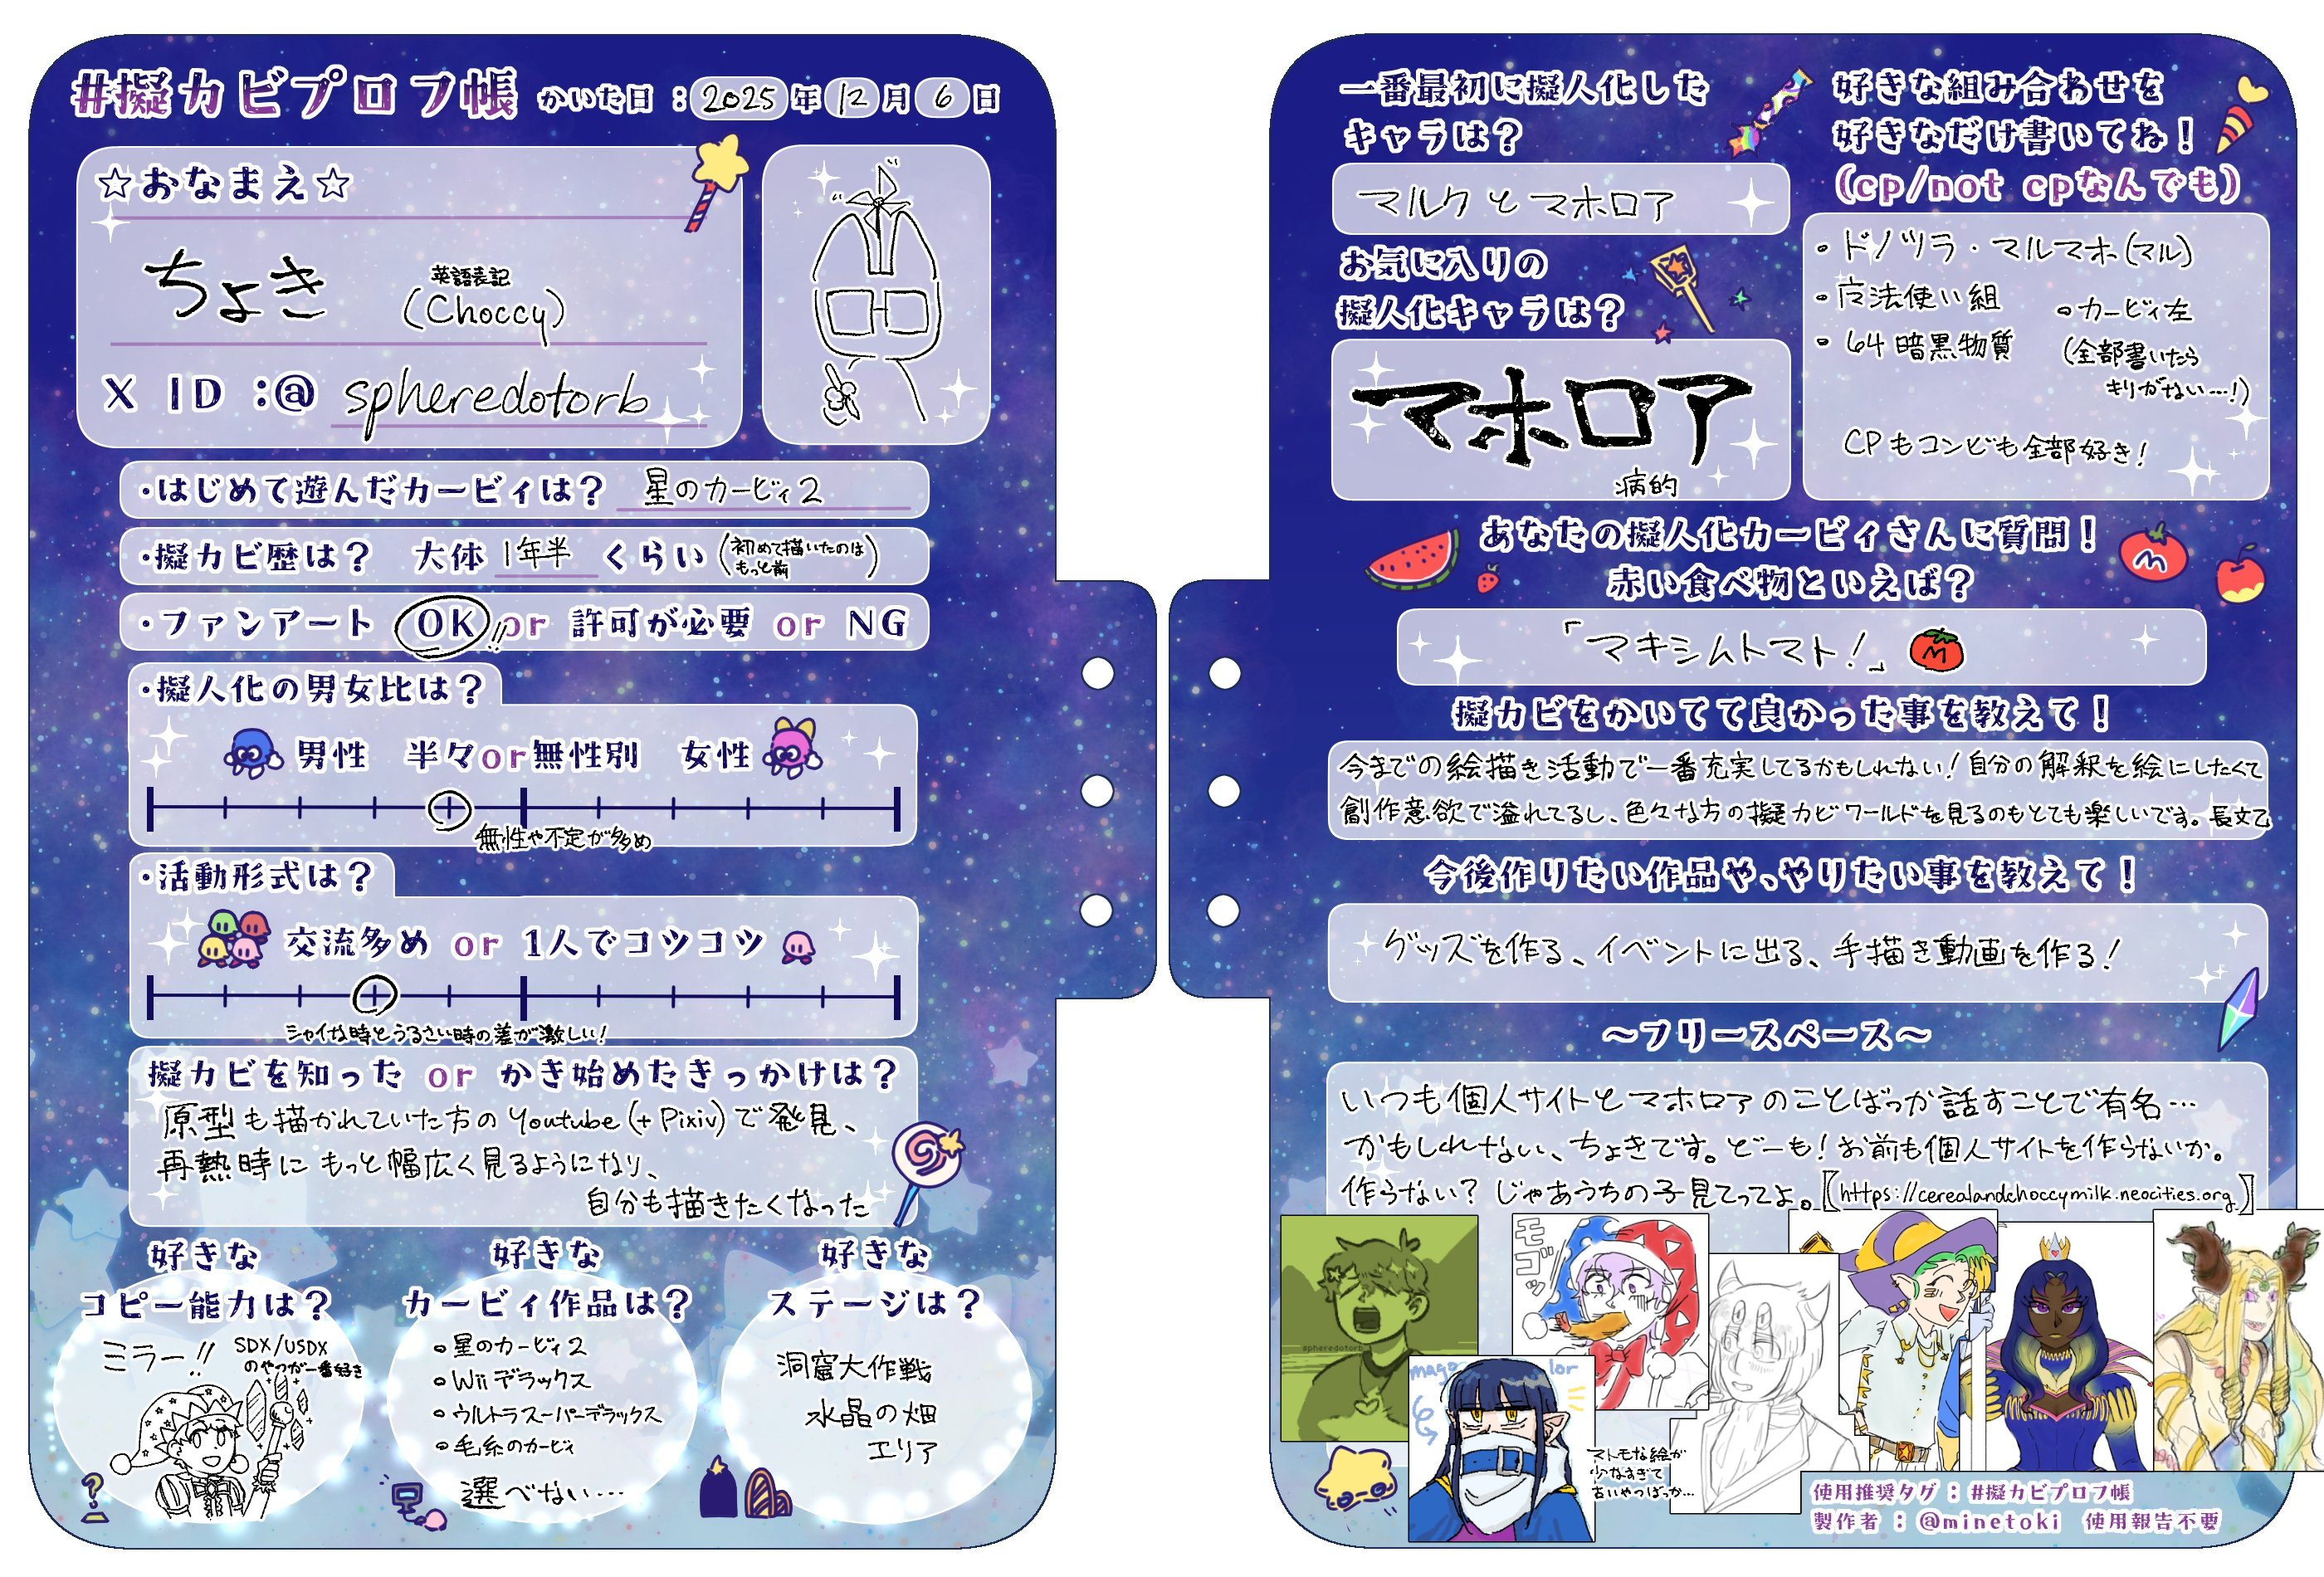 #擬カビプロフ帳 かいた日：2025年12月6日
☆おなまえ☆
ちょき
英語表記
(Choccy)
X ID：@ spheredotorb
・はじめて遊んだカービィは？ 星のカービィ2
・擬カビ歴は？ 大体 1年半 くらい (初めて描いたのは
もっと前)
・ファンアート OK!! or 許可が必要 or NG
・擬人化の男女比は？
男性 半々or無性別 女性
無性や不定が多め
・活動形式は？
交流多め or 1人でコツコツ
シャイな時とうるさい時の差が激しい!
擬カビを知った or かき始めたきっかけは？
原型も描かれていた方のYoutube(+Pixiv)で発見、
再熱時にもっと幅広く見るようになり、
自分も描きたくなった
好きな
コピー能力は？
ミラー!! SDX/USDX
のやつが一番好き
好きな
カービィ作品は？
・星のカービィ2
・Wiiデラックス
・ウルトラスーパーデラックス
・毛糸のカービィ
選べない…
好きな
ステージは？
洞窟大作戦
水晶の畑
エリア
一番最初に擬人化した
キャラは？
マルクとマホロア
お気に入りの
擬人化キャラは？
マホロア
病的
好きな組み合わせを
好きなだけ書いてね！
(cp/not cpなんでも)
・ドノツラ・マルマホ(マル)
・魔法使い組
・カービィ左
・64暗黒物質
(全部書いたら
キリがない…!)
CPもコンビも全部好き!
あなたの擬人化カービィさんに質問！
赤い食べ物といえば？
「マキシムトマト!」
M
擬カビをかいてて良かった事を教えて！
今までの絵描き活動で一番充実してるかもしれない!自分の解釈を絵にしたくて
創作意欲で溢れてるし、色々な方の擬カビワールドを見るのもとても楽しいです。長文乙
今後作りたい作品や、やりたい事を教えて！
グッズを作る、イベントに出る、手描き動画を作る!
～フリースペース～
いつも個人サイトとマホロアのことばっか話すことで有名…
かもしれない、ちょきです。どーも!お前も個人サイトを作らないか。
作らない?じゃあうちの子見てってよ。【https://cerealandchoccymilk.neocities.org】
spheredotorb
モゴッ
magolor
マトモな絵が
少なすぎて
古いやつばっか…
使用推奨タグ：#擬カビプロフ帳
製作者：@minetoki 使用報告不要